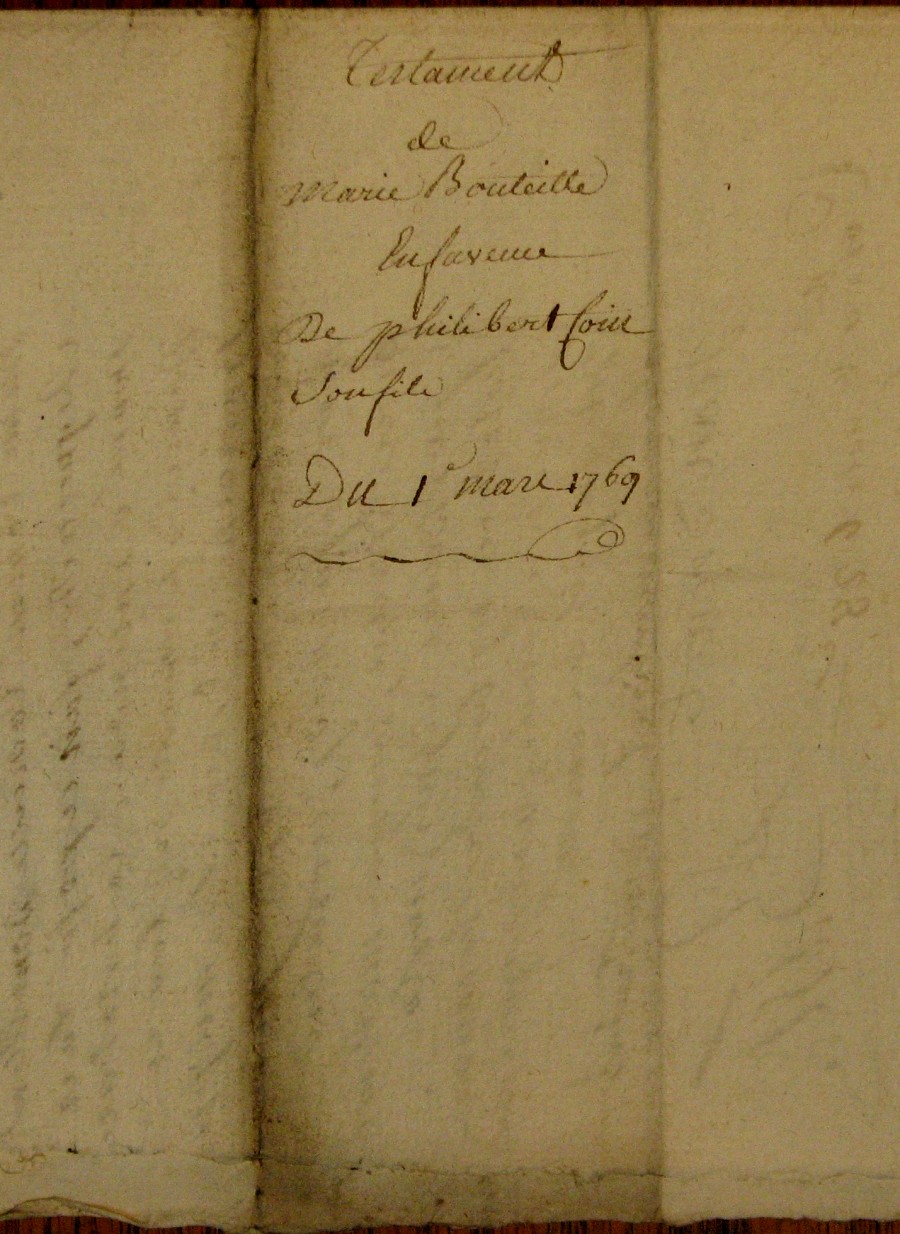 Testament
de
Marie Bouteille
En faveur
De philibert
Son fils
Du 1e mars 1769